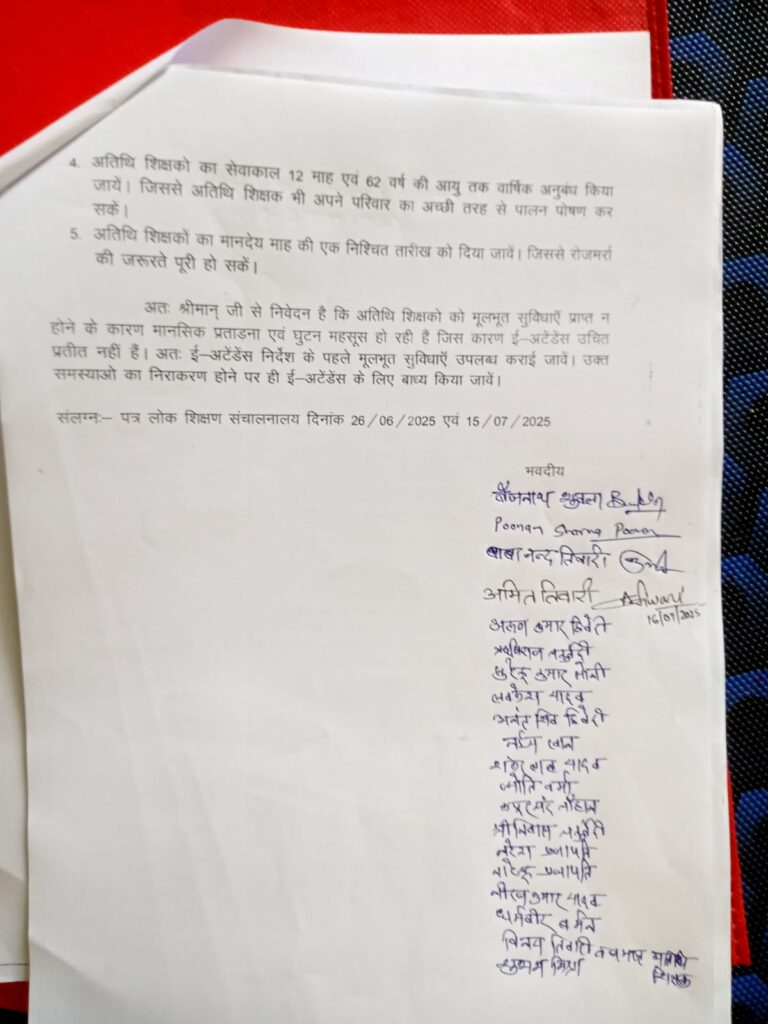 4. अतिथि शिक्षको का सेवाकाल 12 माह एवं 62 वर्ष की आयु तक वार्षिक अनुबंध किया
जायें। जिससे अतिथि शिक्षक भी अपने परिवार का अच्छी तरह से पालन पोषण कर
सकें।
5. अतिथि शिक्षकों का मानदेय माह की एक निश्चित तारीख को दिया जावें। जिससे रोजमर्रा
की जरूरते पूरी हो सकें।
अतः श्रीमान् जी से निवेदन है कि अतिथि शिक्षको को मूलभूत सुविधाऐं प्राप्त न
होने के कारण मानसिक प्रताड़ना एवं घुटन महसूस हो रही हैं जिस कारण ई–अटेंडेंस उचित
प्रतीत नहीं हैं। अतः ई–अटेंडेंस निर्देश के पहले मूलभूत सुविधाऐं उपलब्ध कराई जावें। उक्त
समस्याओ का निराकरण होने पर ही ई–अटेंडेंस के लिए बाध्य किया जावें।
संलग्नः– पत्र लोक शिक्षण संचालनालय दिनांक 26/06/2025 एवं 15/07/2025
भवदीय
बैजनाथ शुक्ला
Poonam Sharma Poonam
बाबा नन्द तिवारी
अमित तिवारी ATiwari
16/07/2025
अरुन कुमार द्विवेदी
ऋषिराज चतुर्वेदी
सुरेन्द्र कुमार सोनी
लवकेश यादव
अनंत शिव द्विवेदी
नईम खान
यादव
ज्योति वर्मा
श्रीनिवास चतुर्वेदी
नरेश प्रजापति
नरेन्द्र प्रजापति
नीरज कुमार यादव
धर्मवीर बर्मन
विनय तिवारी
मिश्रा शिक्षक